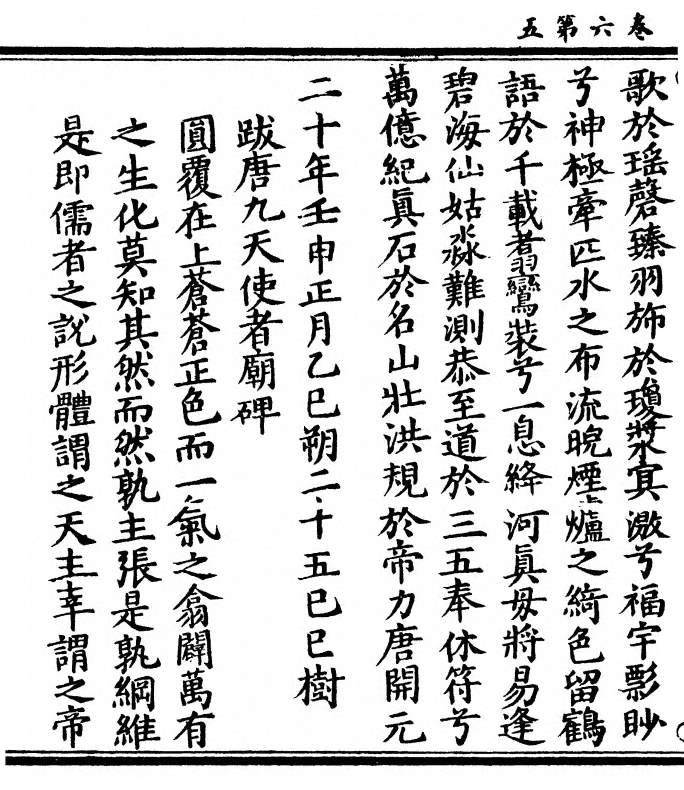 卷六第五
歌於瑶磬臻羽斾於瓊漿寘潡兮福宇彯眇
兮神極牽匹水之布流晲煙爐之綺色留鶴
語於千載翥翯鸞裝兮一息絳河眞母將易逢
碧海仙姑淼難測恭至道於三五奉休符兮
萬億紀眞石於名山壯洪規於帝力唐開元
二十年壬申正月乙巳朔二十五巳巳樹
跋唐九天使者廟碑
圓覆在上蒼蒼正色而一氣之翕闢萬有
之生化莫知其然而然孰主張是孰綱維
是即儒者之說形體謂之天主宰謂之帝